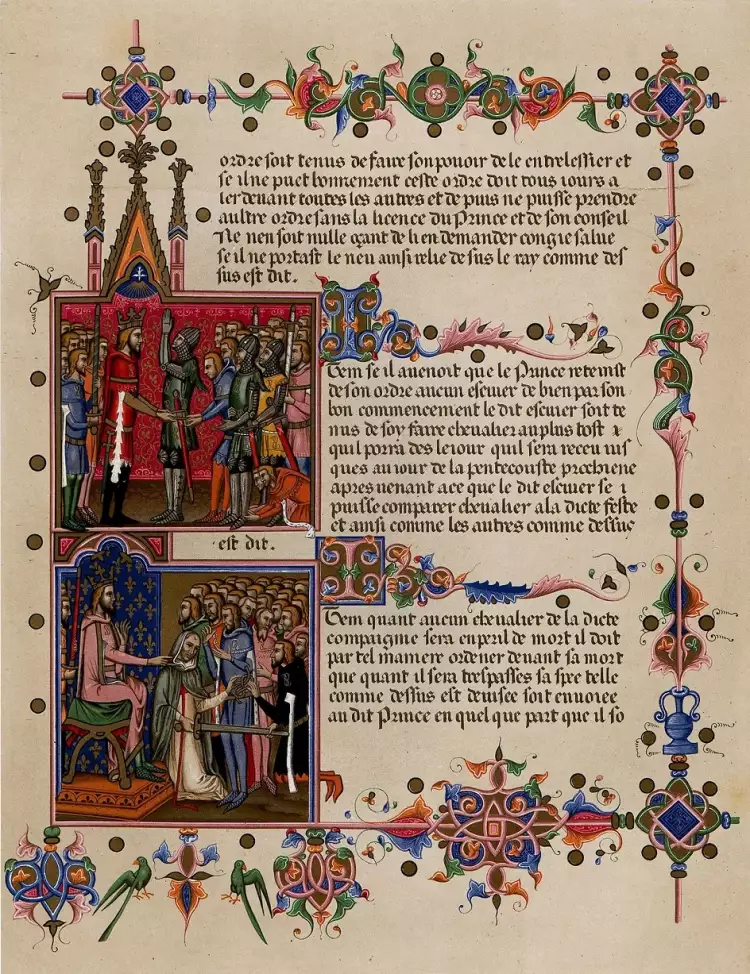 ordre soit tenus de faire son pouoir de le entrelessier et
se il ne puet bonnement ceste ordre doit tous iours a
ler deuant toutes les autres et de puis ne puisse prendre
aultre ordre sans la licence du Prince et de son conseil
Ne nen soit nulle de lien demander congie salue
se il ne portast le neu ainsi relie de sus le ray comme des
sus est dit.
Item se il auenoit que le Prince retenist
de son ordre aucun escuier de bien par son
bon commencement le dit escuier soit te
nus de soy faire cheualier au plus tost &
quil porra des le iour quil sera receu ius
ques au iour de la pentecouste prochiene
apres uenant ace que le dit escuier se i
puisse comparer cheualier a la dicte feste
et ainsi comme les autres comme dessus
est dit.
Item quant aucun cheualier de la dicte
compaignie sera en peril de mort il doit
par tel maniere ordener deuant sa mort
que quant il sera trespasses sa spee telle
comme dessus est deuisee soit enuoiee
au dit Prince en quel que part que il so